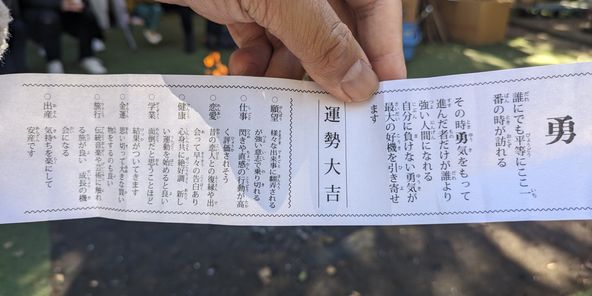 勇
誰にでも平等にここ一
番の時が訪れる
その時勇気をもって
進んだ者だけが誰より
強い人間になれる
自分に負けない勇気が
最大の好機を引き寄せ
ます
運勢大吉
○願望 様々な出来事に翻弄される
が強い意志で乗り切れる
○仕事 閃きや直感の行動が高
く評価されそう
○恋愛 昔の恋人との復縁や出
会って早々の告白あり
○健康 心身共に絶好調 新し
い運動を始めると良い
○学業 面倒だと思うことほど
結果がついてきます
○金運 思い切って大きな買い
物をするのも良い
○旅行 伝統音楽や芸術に触れ
る旅が良い 成長の機
会になる
○出産 気持ちを楽にして
安産です